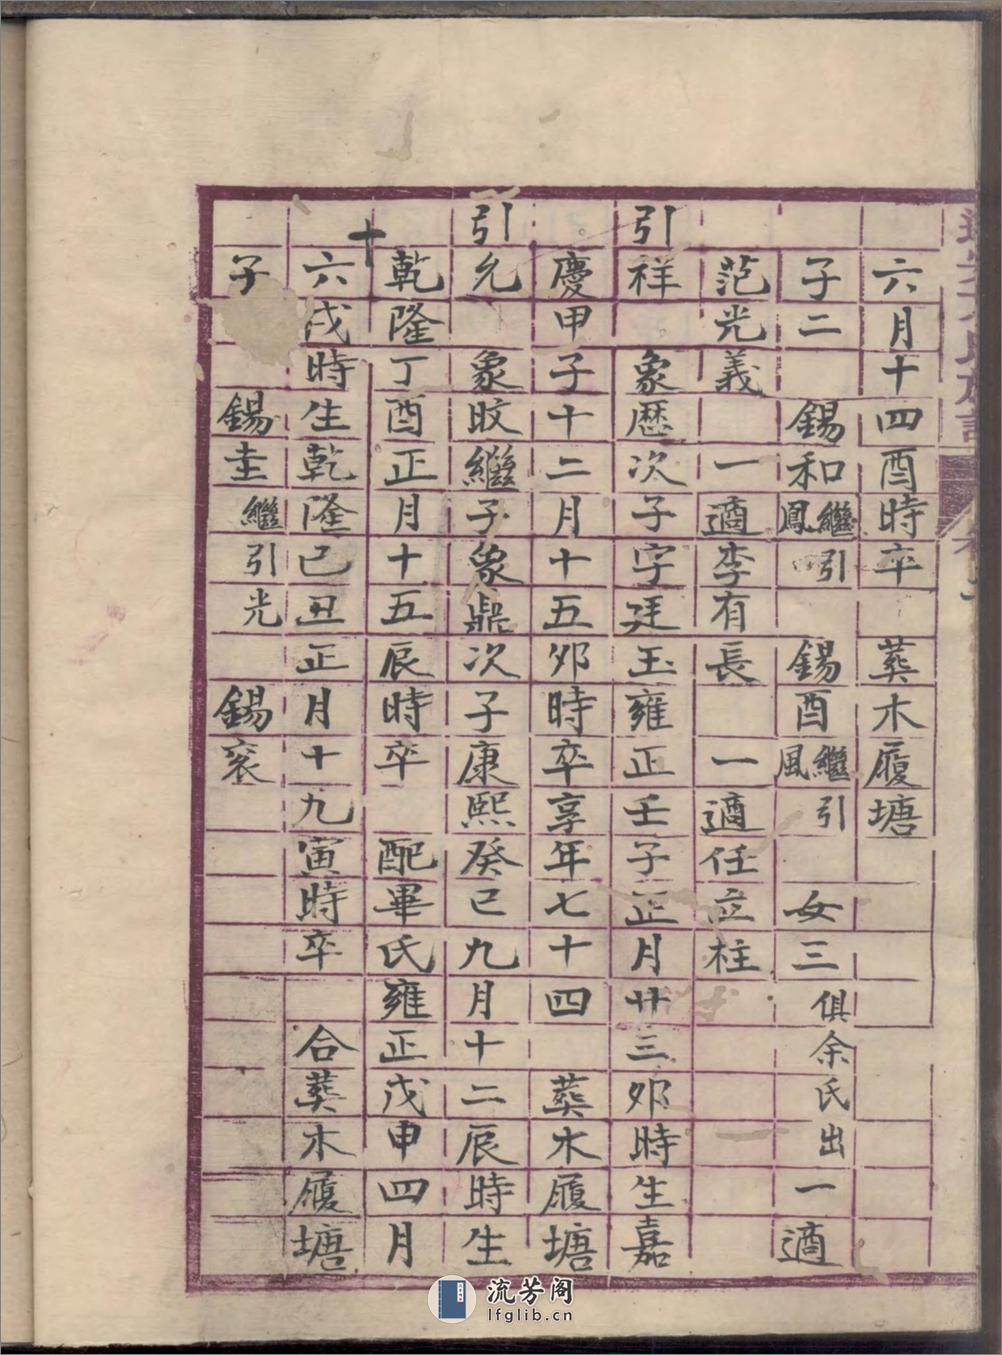 六月十四酉時卒 葬木履塘
子二 錫和繼鳳引 錫酉繼風引 女三俱余氏出一適
范光義 一適李有長 一適任立柱
引祥 象歷次子字廷玉雍正壬子正月廿三卯時生嘉
慶甲子十二月十五卯時卒享年七十四 葬木履塘
引允 象旼繼子象鼎次子康熙癸巳九月十二辰時生
乾隆丁酉正月十五辰時卒 配畢氏雍正戊申四月
十六戌時生乾隆己丑正月十九寅時卒 合葬木履塘
子 錫圭繼引光 錫袞
流芳阁
lfglib.cn